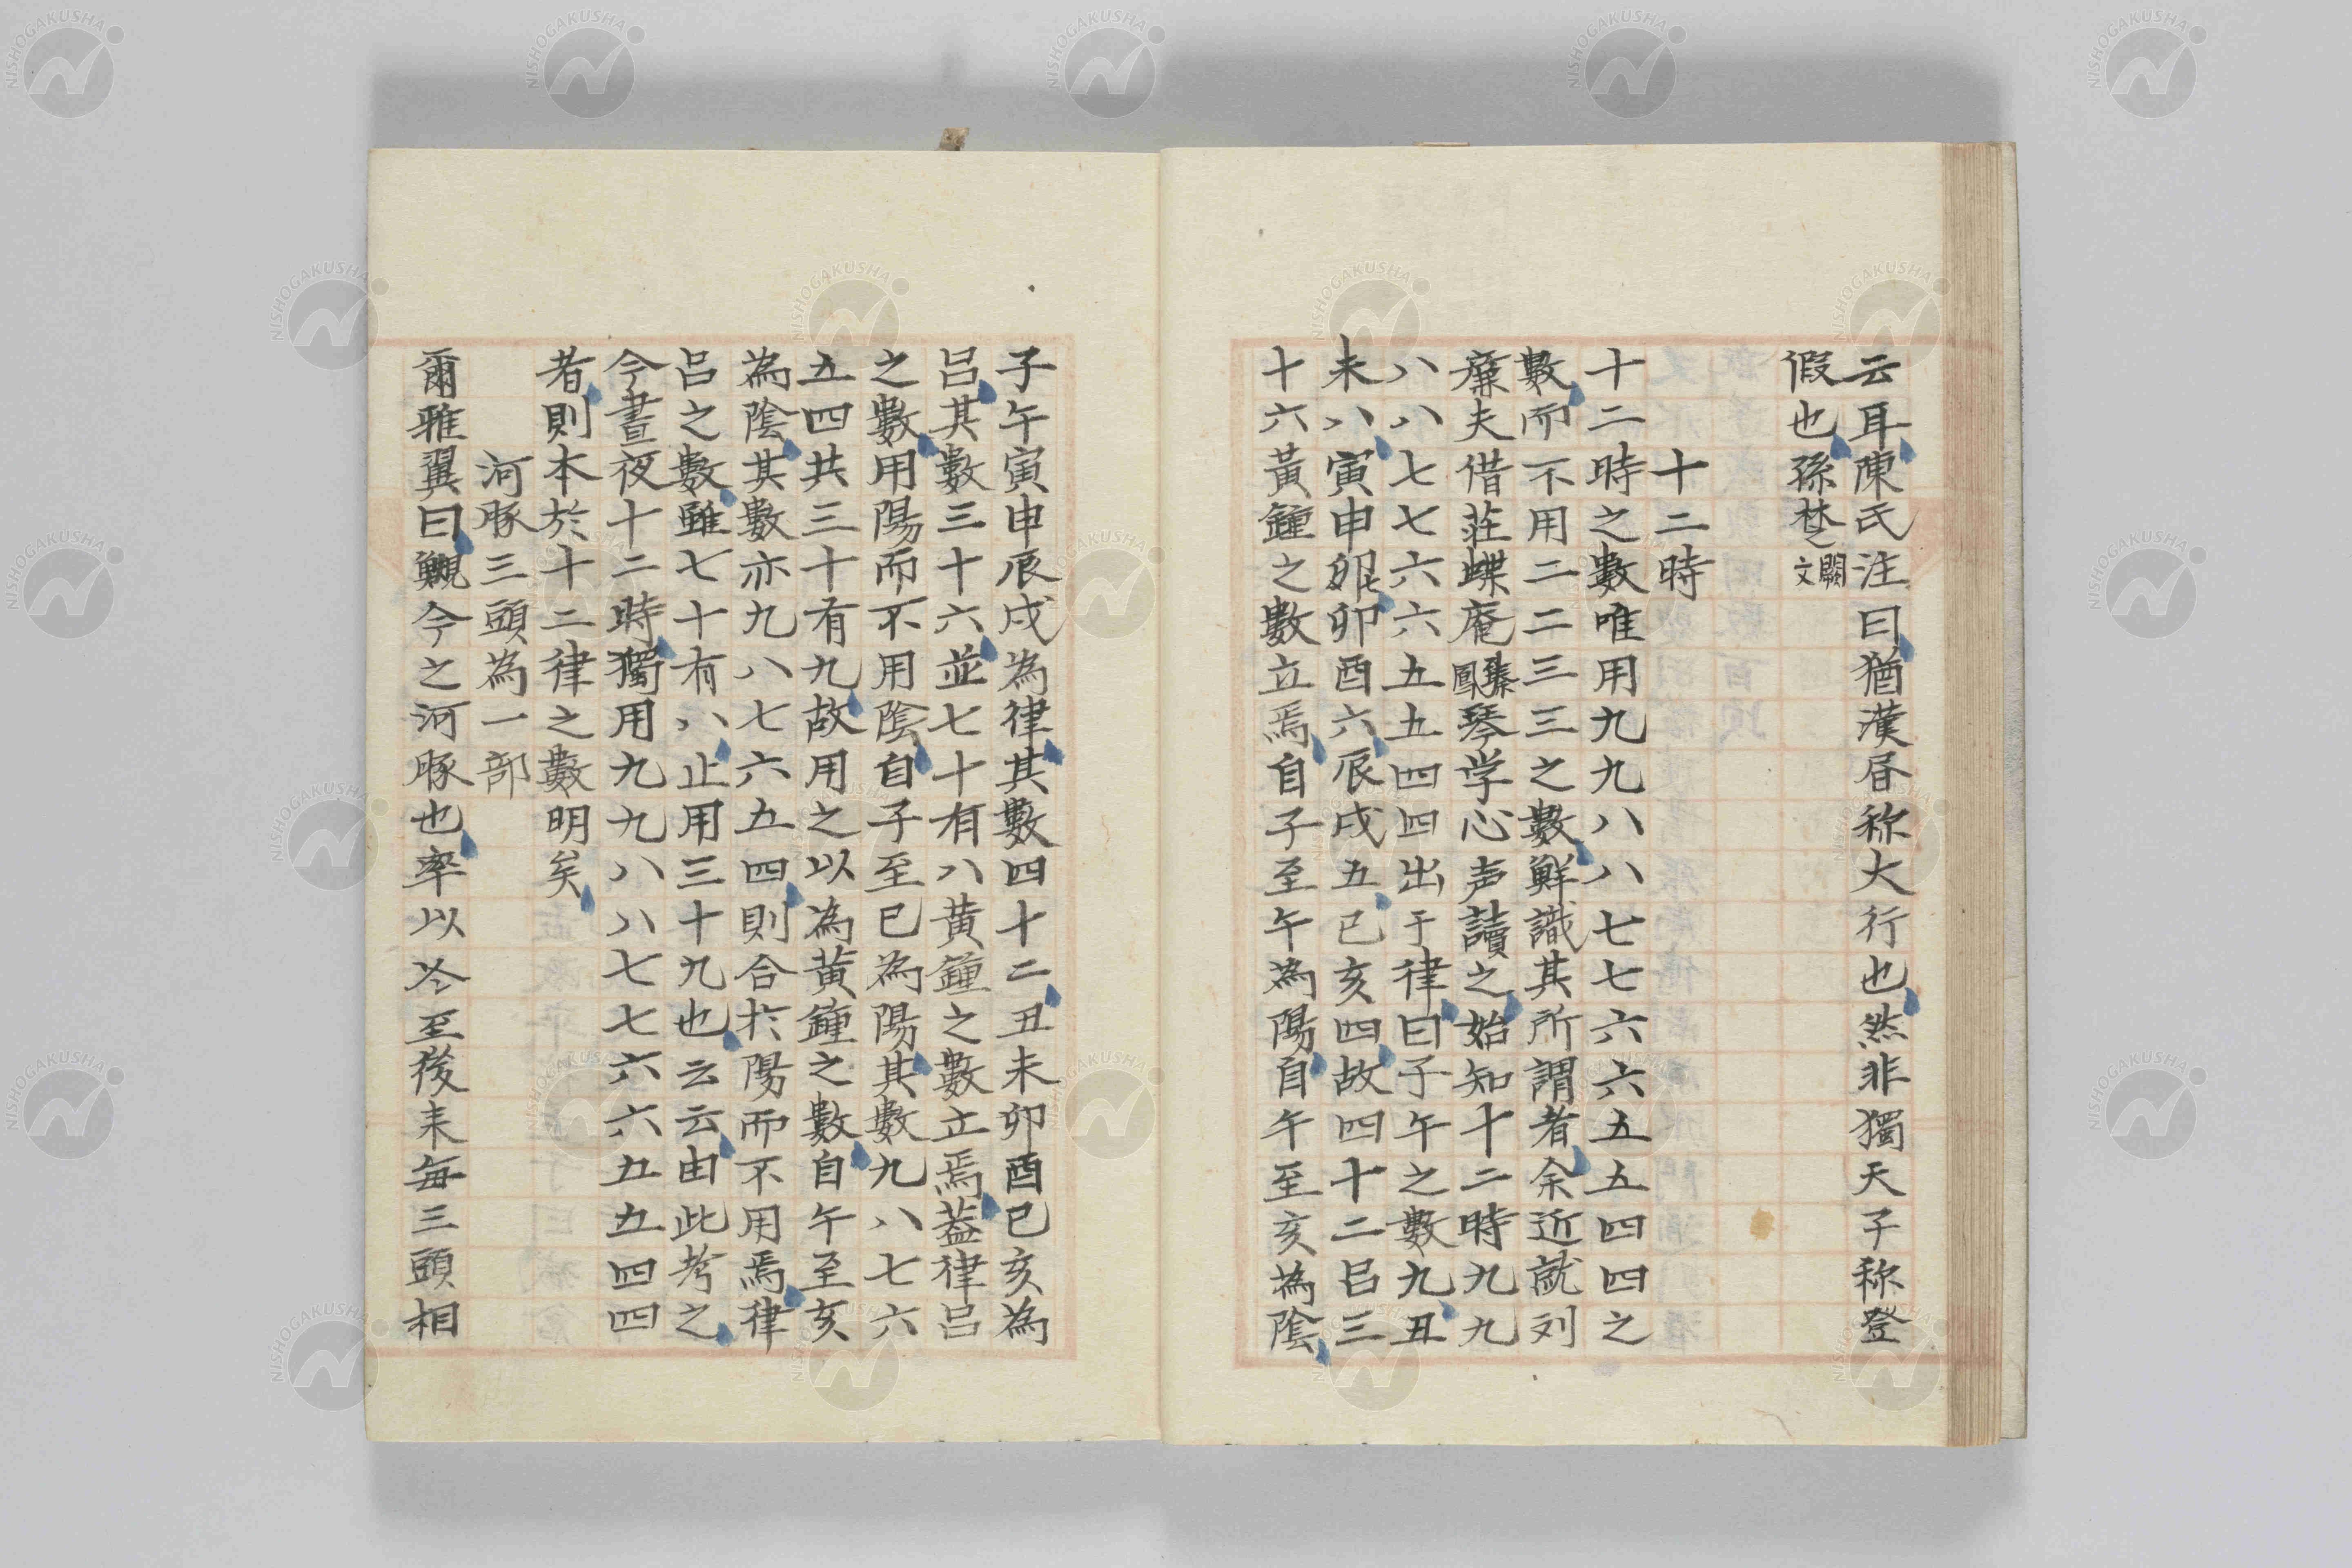 云耳陳氏注曰猶漢昏称大行也然非獨天子称登
假也孫楚文闕
十二時
十二時之數唯用九九八八七七六六五五四四之
數而不用二二三三之數鮮識其所謂者余近就列
廉夫借荘蝶庵臻鳳琴学心声讀之始知十二時九九
八八七七六六五五四四出于律曰子午之數九丑
未八寅申七卯酉六辰戌五巳亥四故四十二呂三
十六黃鐘之數立焉自子至午為陽自午至亥為陰
子午寅申辰戌為律其數四十二丑未卯酉巳亥為
呂其數三十六並七十有八黄鐘之數立焉葢律呂
之數用陽而不用陰自子至巳為陽其數九八七六
五四共三十有九故用之以為黄鐘之數自午至亥
為陰其數亦九八七六五四則合於陽而不用焉律
呂之數雖七十有八止用三十九也云云由此考之
今晝夜十二時獨用九九八八七七六六五五四四
者則本於十二律之數明矣
河豚三頭為一部
爾雅翼曰鯢今之河豚也率以冬至後耒每三頭相
NISHOGAKUSHA